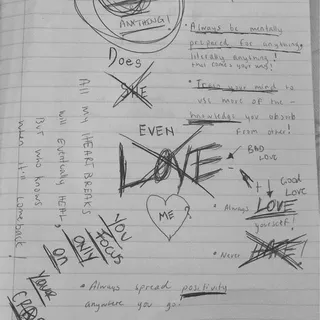 ANYTHING!
• Always be mentally
prepared for anything,
literally anything!
that comes your way!
Does
SHE
• Train your mind to
use more of the
knowledge you absorb
from other!
EVEN
LOVE
BAD
LOVE
GOOD
LOVE
ME ?
• Always LOVE
yourself!
• Never HATE!
All my HEART BREAKS
will eventually HEAL,
But who knows
when it'll come back!
YOU
FOCUS
ONLY
ON
YOUR
• Always spread positivity
anywhere you go!